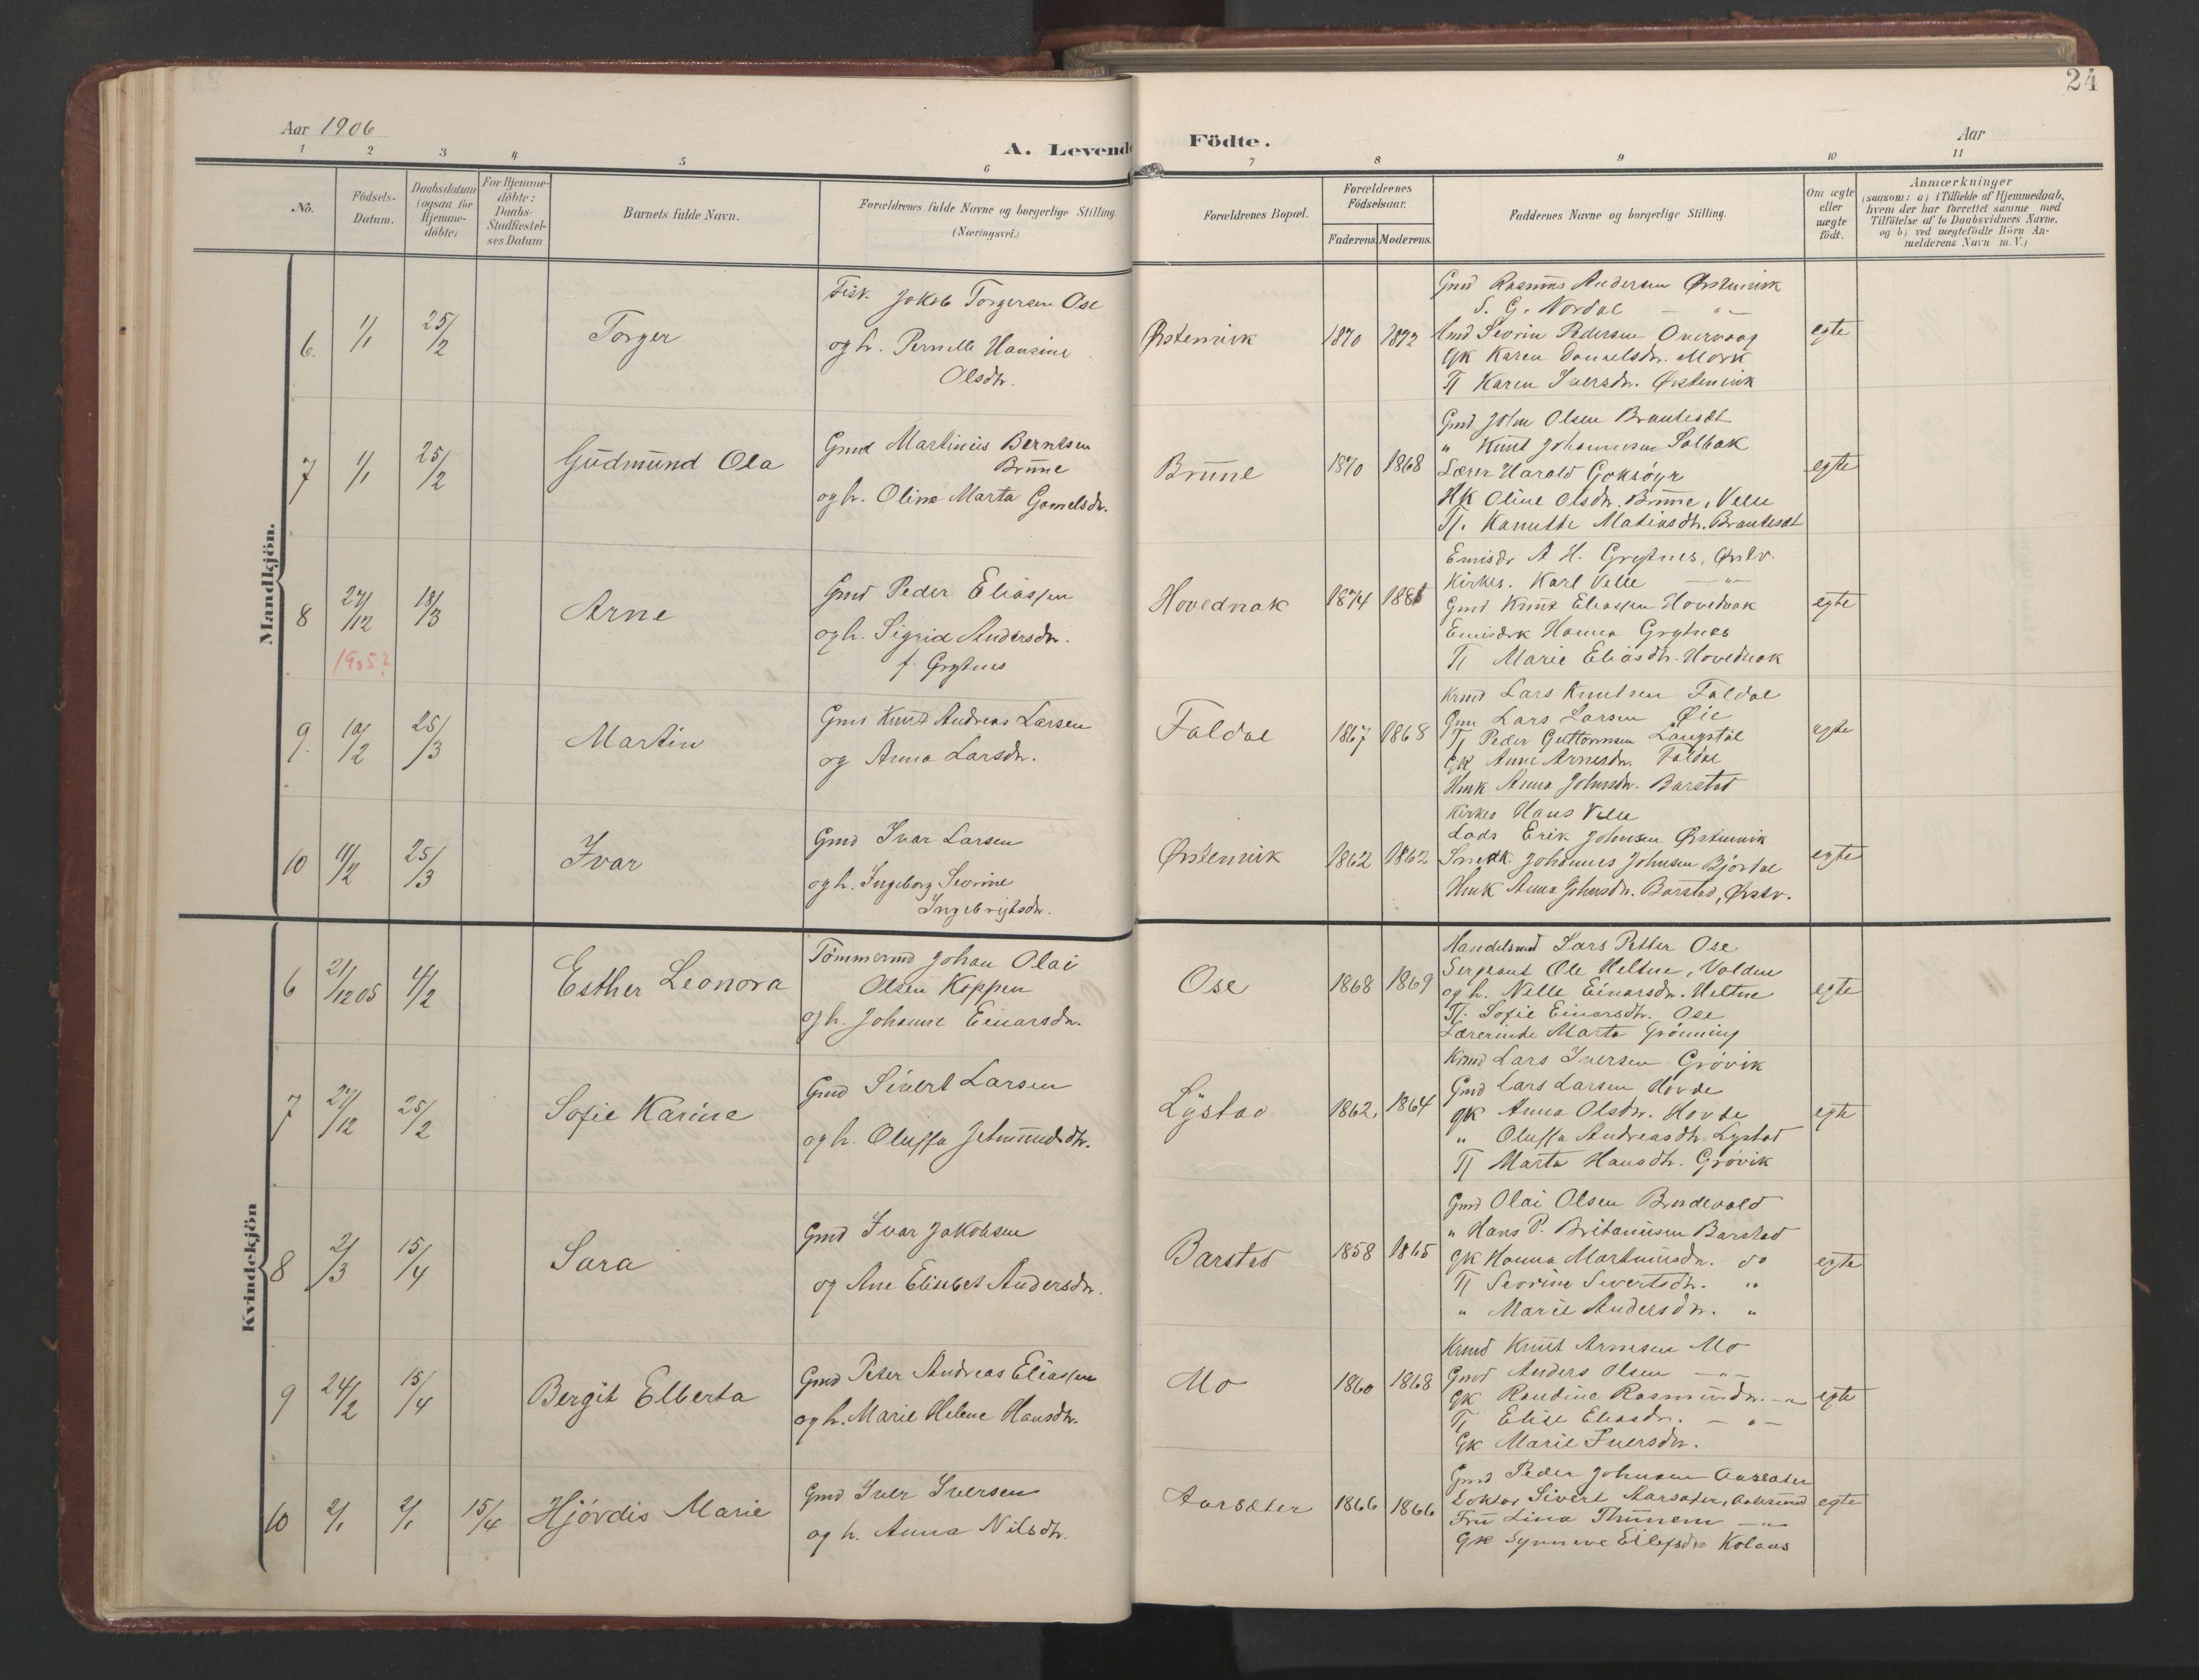 24
Aar 1906
A. Levende Födte.
Aar
1 2 3 4 5 6 7 8 9 10 11
No.
Födsels-Datum.
Daabsdatum (ogsaa for Hjemme-döbte)
For Hjemme-döbte: Daabs-Stadfæstel-ses Datum
Barnets fulde Navn.
Forældrenes fulde Navne og borgerlige Stilling.
(Næringsvei.)
Forældrenes Bopæl.
Forældrenes Födselsaar.
Faderens. Moderens.
Faddernes Navne og borgerlige Stilling.
Om ægte eller uægte födt.
Anmærkninger
(saasom: a) i Tilfælde af Hjemmedaab,
hvem der har forrettet samme med
Tilföielse af to Daabsvidners Navne.
og b) ved uægtefödte Börn An-
melderens Navn m. V.)
Mandkjön.
6. 1/1 25/2 Torger
Fisk. Jakob Torgersen Ose
og h. Pernille Hansine
Olsdtr.
Østenvik 1870 1872
Gmd Rasmus Andersen Østenvik
S. G. Nordal — " —
Gmd Sevrin Pedersen Overvaag
Gk Karen Danielsdtr. Mork
Tj Karen Iversdtr. Østenvik
egte
7 1/1 25/2 Gudmund Ola
Gmd Martinus Berntsen
Brune
og h. Oline Marta Gamelsdtr.
Brune 1870 1868
Gmd John Olsen Brautesæt
" Knut Johannesen Solbak
Lærer Harald Goksöyr
Hk Oline Olsdtr. Brune, Velle
Tj. Kanutte Matiasdtr. Brautesæt
egte
8 27/12 18/3 Arne
1905?
Gmd Peder Eliassen
og h. Sigrid Andersdtr.
f. Grytnes
Hovednak 1874 1881
Emisær A. H. Grytnes, Østv.
Kirkes. Karl Velle — " —
Gmd Knut Eliassen Hovednak
Emisærk Hanna Grytnes
Tj Marie Eliasdtr. Hovednak
egte
9. 10/2 25/3 Martin
Gmd Knut Andreas Larsen
og Anna Larsdtr.
Foldal 1867 1868
Kmd Lars Knutsen Foldal
Gm Lars Larsen Øie
Tj Peder Guttormsen Langstøl
Gk Anne Arnesdtr. Foldal
Hmk Anna Johnsdtr. Barstad
egte
10 11/2 25/3 Ivar
Gmd Ivar Larsen
og h. Ingeborg Sevrine
Ingebrigtsdtr.
Østenvik 1862 1862
Kirkes Hans Velle
Lods Erik Johnsen Østenvik
Snedk. Johannes Johnsen Bjørdal
Hmk Anna Johnsdtr. Barstad, Østv.
egte
Kvindekjön
6 21/12 05 4/2 Esther Leonora
Tømmermd Johan Olai
Olsen Koppen
og h. Johanne Einarsdtr.
Ose 1868 1869
Handelsmd Lars Petter Ose
Sergeant Ole Heltne, Volden
og h. Nelle Einarsdtr. Heltne
Tj. Sofie Einarsdtr. Ose
Lærerinde Marta Grönning
egte
7 27/12 25/2 Sofie Karine
Gmd Sivert Larsen
og h. Oluffa Jetmundsdtr.
Lystad 1862, 1864
Kmd Lars Iversen Grövik
Gmd Lars Larsen Hovde
Gk Anna Olsdtr. Hovde
" Oluffa Andreasdtr. Lystad
Tj Marta Hansdtr. Grövik
egte
8 2/3 15/4 Sara
Gmd Ivar Jakobsen
og Ane Elisabet Andersdtr.
Barstad 1858 1865
Gmd Olai Olsen Brudevold
" Hans P. Britaniusen Barstad
Gk Hanna Martinusdtr. do
Tj Sevrine Sivertsdtr. "
" Marie Andersdtr. "
egte
9 24/2 15/4 Bergit Elberta
Gmd Peter Andreas Eliassen
og h. Marie Helene Hansdtr.
Mo 1860 1868
Kmd Knut Arnesen Mo
Gmd Anders Olsen — " —
Gk Randine Rasmusdtr. — " —
Tj Elise Eliasdtr. — " —
Gk Marie Iversdtr.
egte
10 2/1 2/1 15/4 Hjördis Marie
Gmd Iver Iversen
og h. Anna Nilsdtr.
Aarsæter 1866 1866
Gmd Peder Johnsen Aarsæter
Doktor Sivert Aarsæter, Aalesund
Fru Lina Thunem — " —
Gk Synneve Eilefsdtr Kolaas
egte